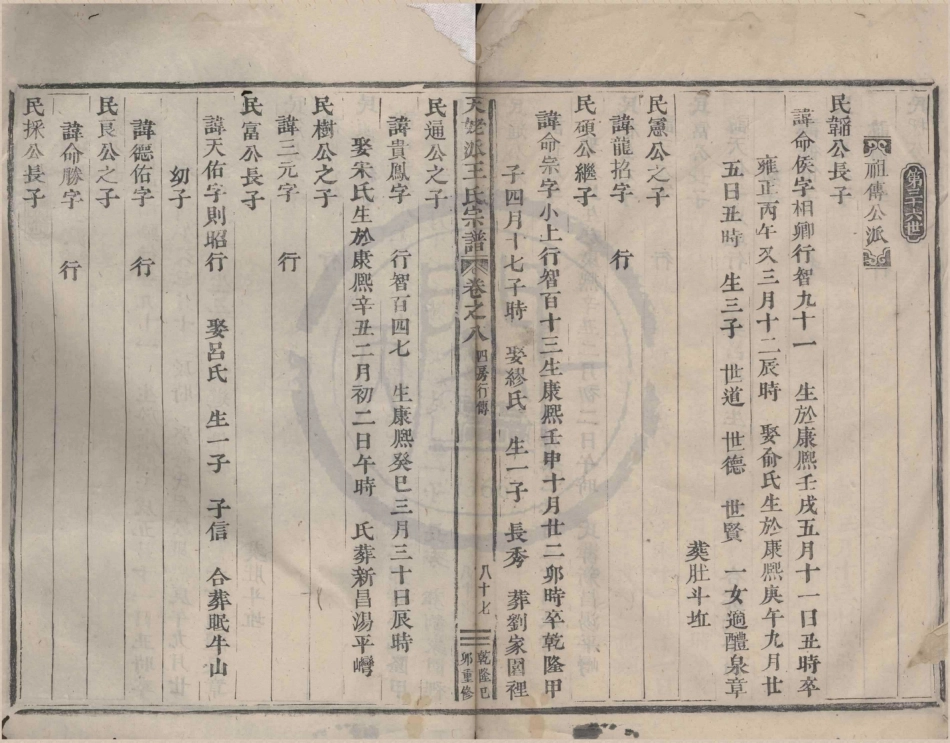 第三十六世
祖傳公派
民韜公長子
諱命侯字相卿行智九十一 生於康熙壬戌五月十一日丑時卒
雍正丙午又三月十二辰時 娶俞氏生於康熙庚午九月廿
五日丑時 生三子 世道 世德 世賢 一女適醴泉章
葬肚斗坵
民憲公之子
諱龍招字 行
民碩公繼子
諱命宗字小上行智百十三生康熙壬申十月廿二卯時卒乾隆甲
子四月十七子時 娶繆氏 生一子 長秀 葬劉家園裡
天姥派王氏宗譜 卷之八 四房行傳 八十七 乾隆己卯重修
民通公之子
諱貴鳳字 行智百四七 生康熙癸巳三月三十日辰時
娶宋氏生於康熙辛丑二月初二日午時 氏葬新昌湯平嶴
民樹公之子
諱三元字 行
民富公長子
諱天佑字則昭行 娶呂氏 生一子 子信 合葬眠牛山
幼子
諱德佑字 行
民良公之子
諱命勝字 行
民採公長子